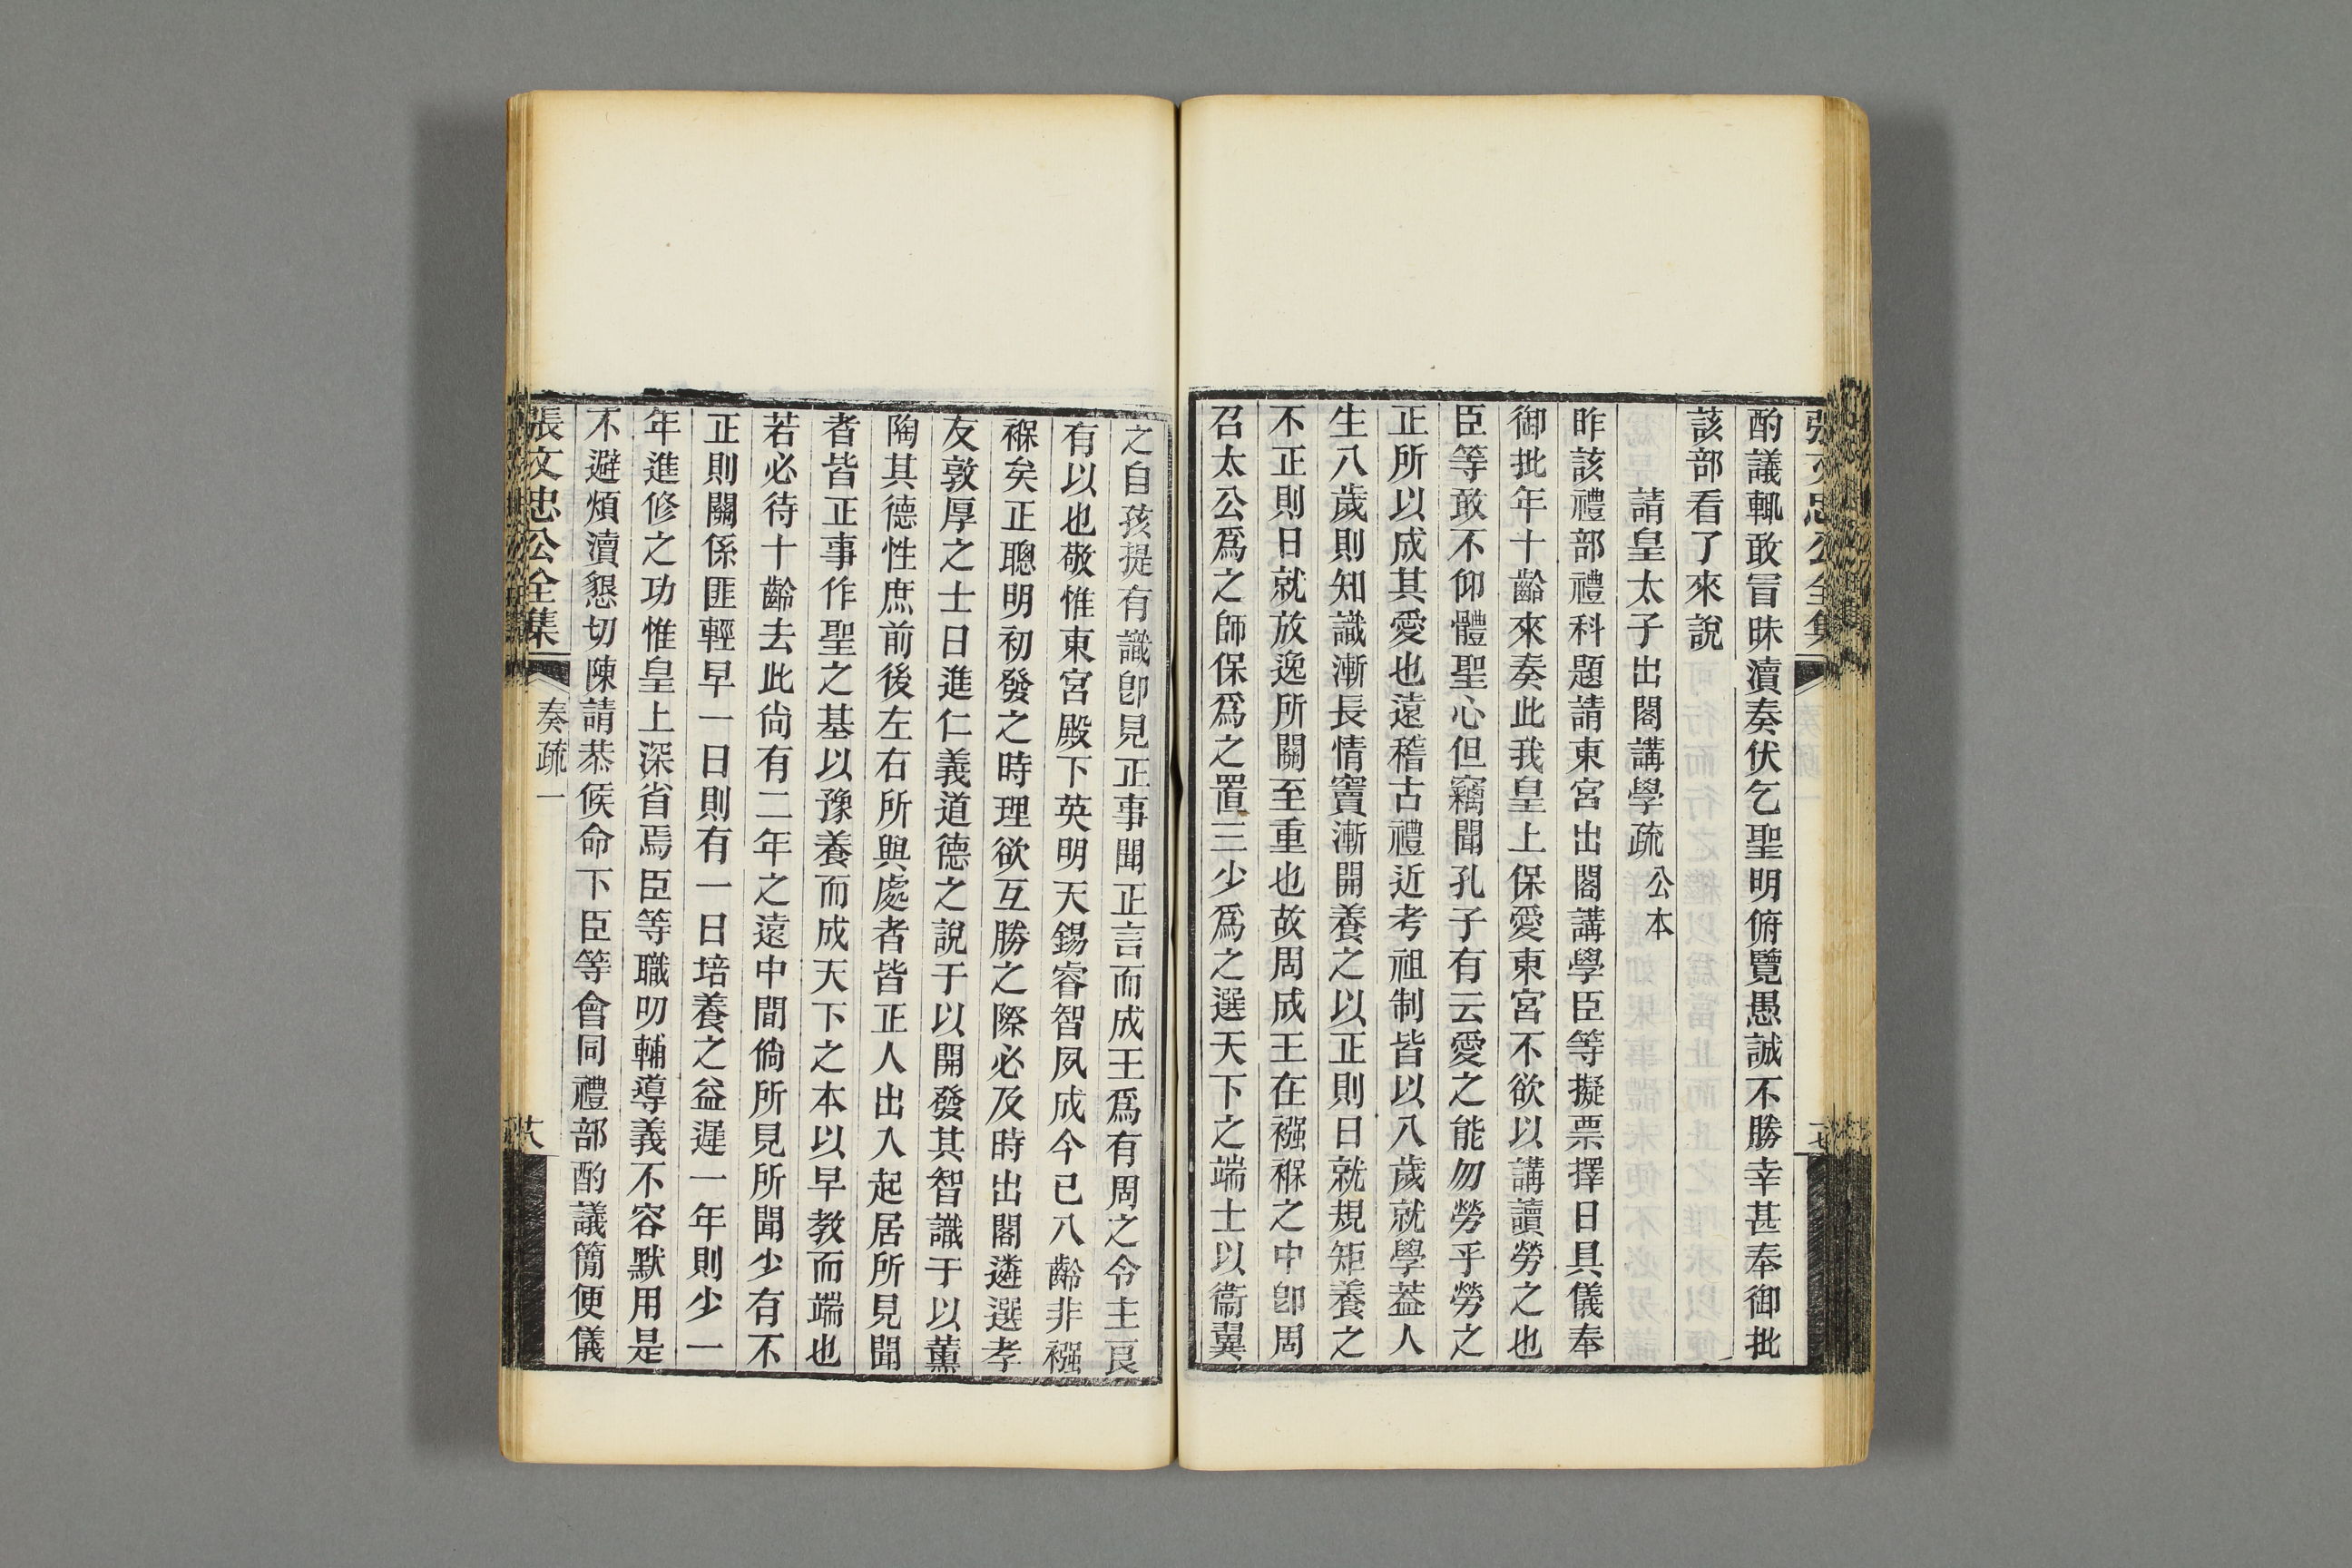 張文忠公全集
奏疏一
酌議輒敢冒昧瀆奏伏乞聖明俯覽愚誠不勝幸甚奉御批
該部看了來說
請皇太子出閣講學疏 公本
昨該禮部禮科題請東宮出閣講學臣等擬票擇日具儀奉
御批年十齡來奏此我皇上保愛東宮不欲以講讀勞之也
臣等敢不仰體聖心但竊聞孔子有云愛之能勿勞乎勞之
正所以成其愛也遠稽古禮近考祖制皆以八歲就學葢人
生八歲則知識漸長情竇漸開養之以正則日就規矩養之
不正則日就放逸所關至重也故周成王在襁褓之中卽周
召太公爲之師保爲之置三少爲之選天下之端士以衞翼
之自孩提有識卽見正事聞正言而成王爲有周之令主良
有以也敬惟東宮殿下英明天錫睿智夙成今已八齡非襁
褓矣正聰明初發之時理欲互勝之際必及時出閣遴選孝
友敦厚之士日進仁義道德之說于以開發其智識于以薰
陶其德性庶前後左右所與處者皆正人出入起居所見聞
者皆正事作聖之基以豫養而成天下之本以早教而端也
若必待十齡去此尙有二年之遠中間倘所見所聞少有不
正則關係匪輕早一日則有一日培養之益遲一年則少一
年進修之功惟皇上深省焉臣等職叨輔導義不容默用是
不避煩瀆懇切陳請恭候命下臣等會同禮部酌議簡便儀
張文忠公全集
奏疏一
六